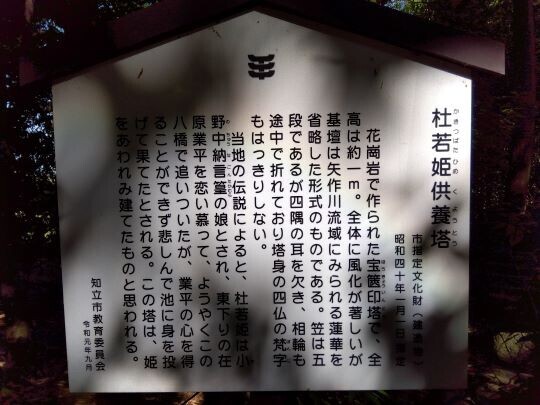 杜若姫供養塔
かきつばたひめくようとう
市指定文化財（建造物）
昭和四十年一月一日指定
花崗岩で作られた宝篋印塔で、全
高は約一ｍ。全体に風化が著しいが
基壇は矢作川流域にみられる蓮華を
省略した形式のものである。笠は五
段であるが四隅の耳を欠き、相輪も
途中で折れており塔身の四仏の梵字
もはっきりしない。
当地の伝説によると、杜若姫は小
野中納言篁の娘とされ、東下りの在
原業平を恋い慕って、ようやくこの
八橋で追いついたが、業平の心を得
ることができず悲しんで池に身を投
げて果てたとされる。この塔は、姫
をあわれみ建てたものと思われる。
知立市教育委員会
令和元年九月